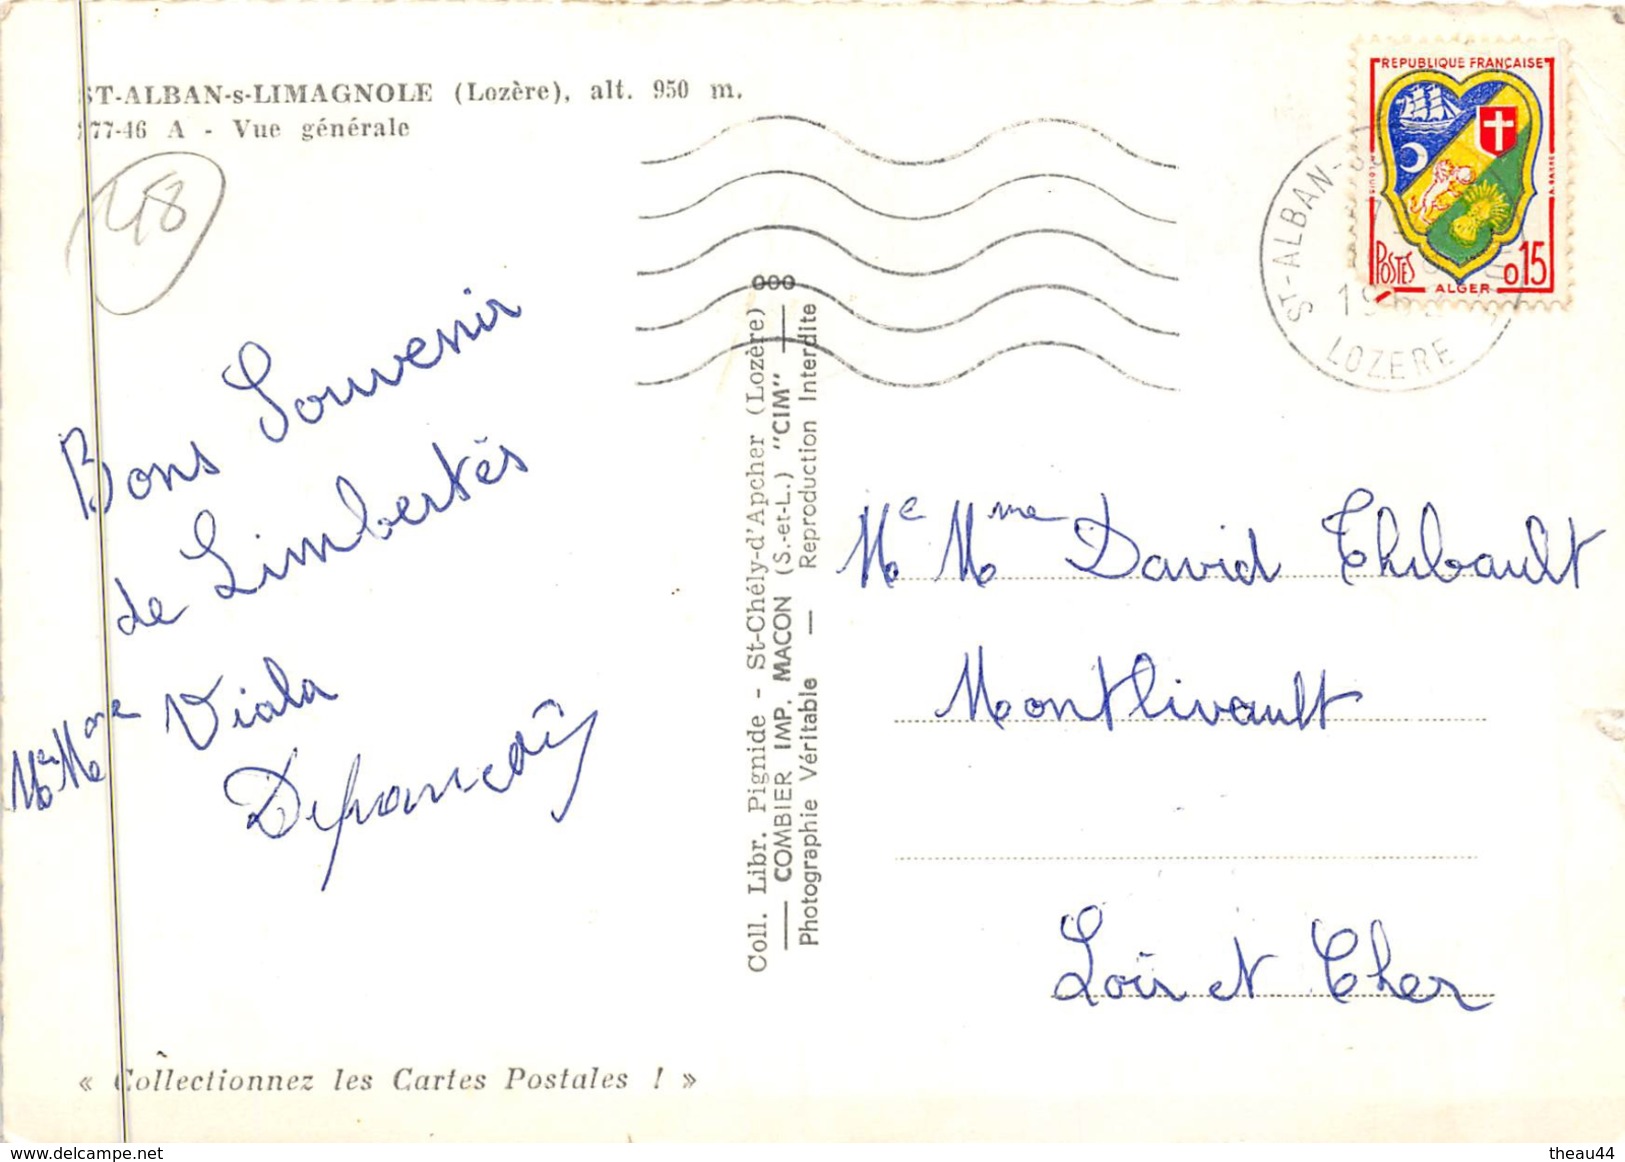 ST-ALBAN-s-LIMAGNOLE (Lozère), alt. 950 m.
277-46 A - Vue générale
48
Bons Souvenir
de Limbertés
Mr Mme Viala
Coll. Libr. Pignide - St-Chély-d'Apcher (Lozère)
COMBIER IMP. MACON (S.-et-L.) "CIM"
Photographie Véritable — Reproduction Interdite
REPUBLIQUE FRANÇAISE
POSTES
ALGER
0,15
ST-ALBAN-
LOZERE
Me Mme David Thibault
Montlivault
Loir et Cher
« Collectionnez les Cartes Postales ! »
www.delcampe.net
theau44